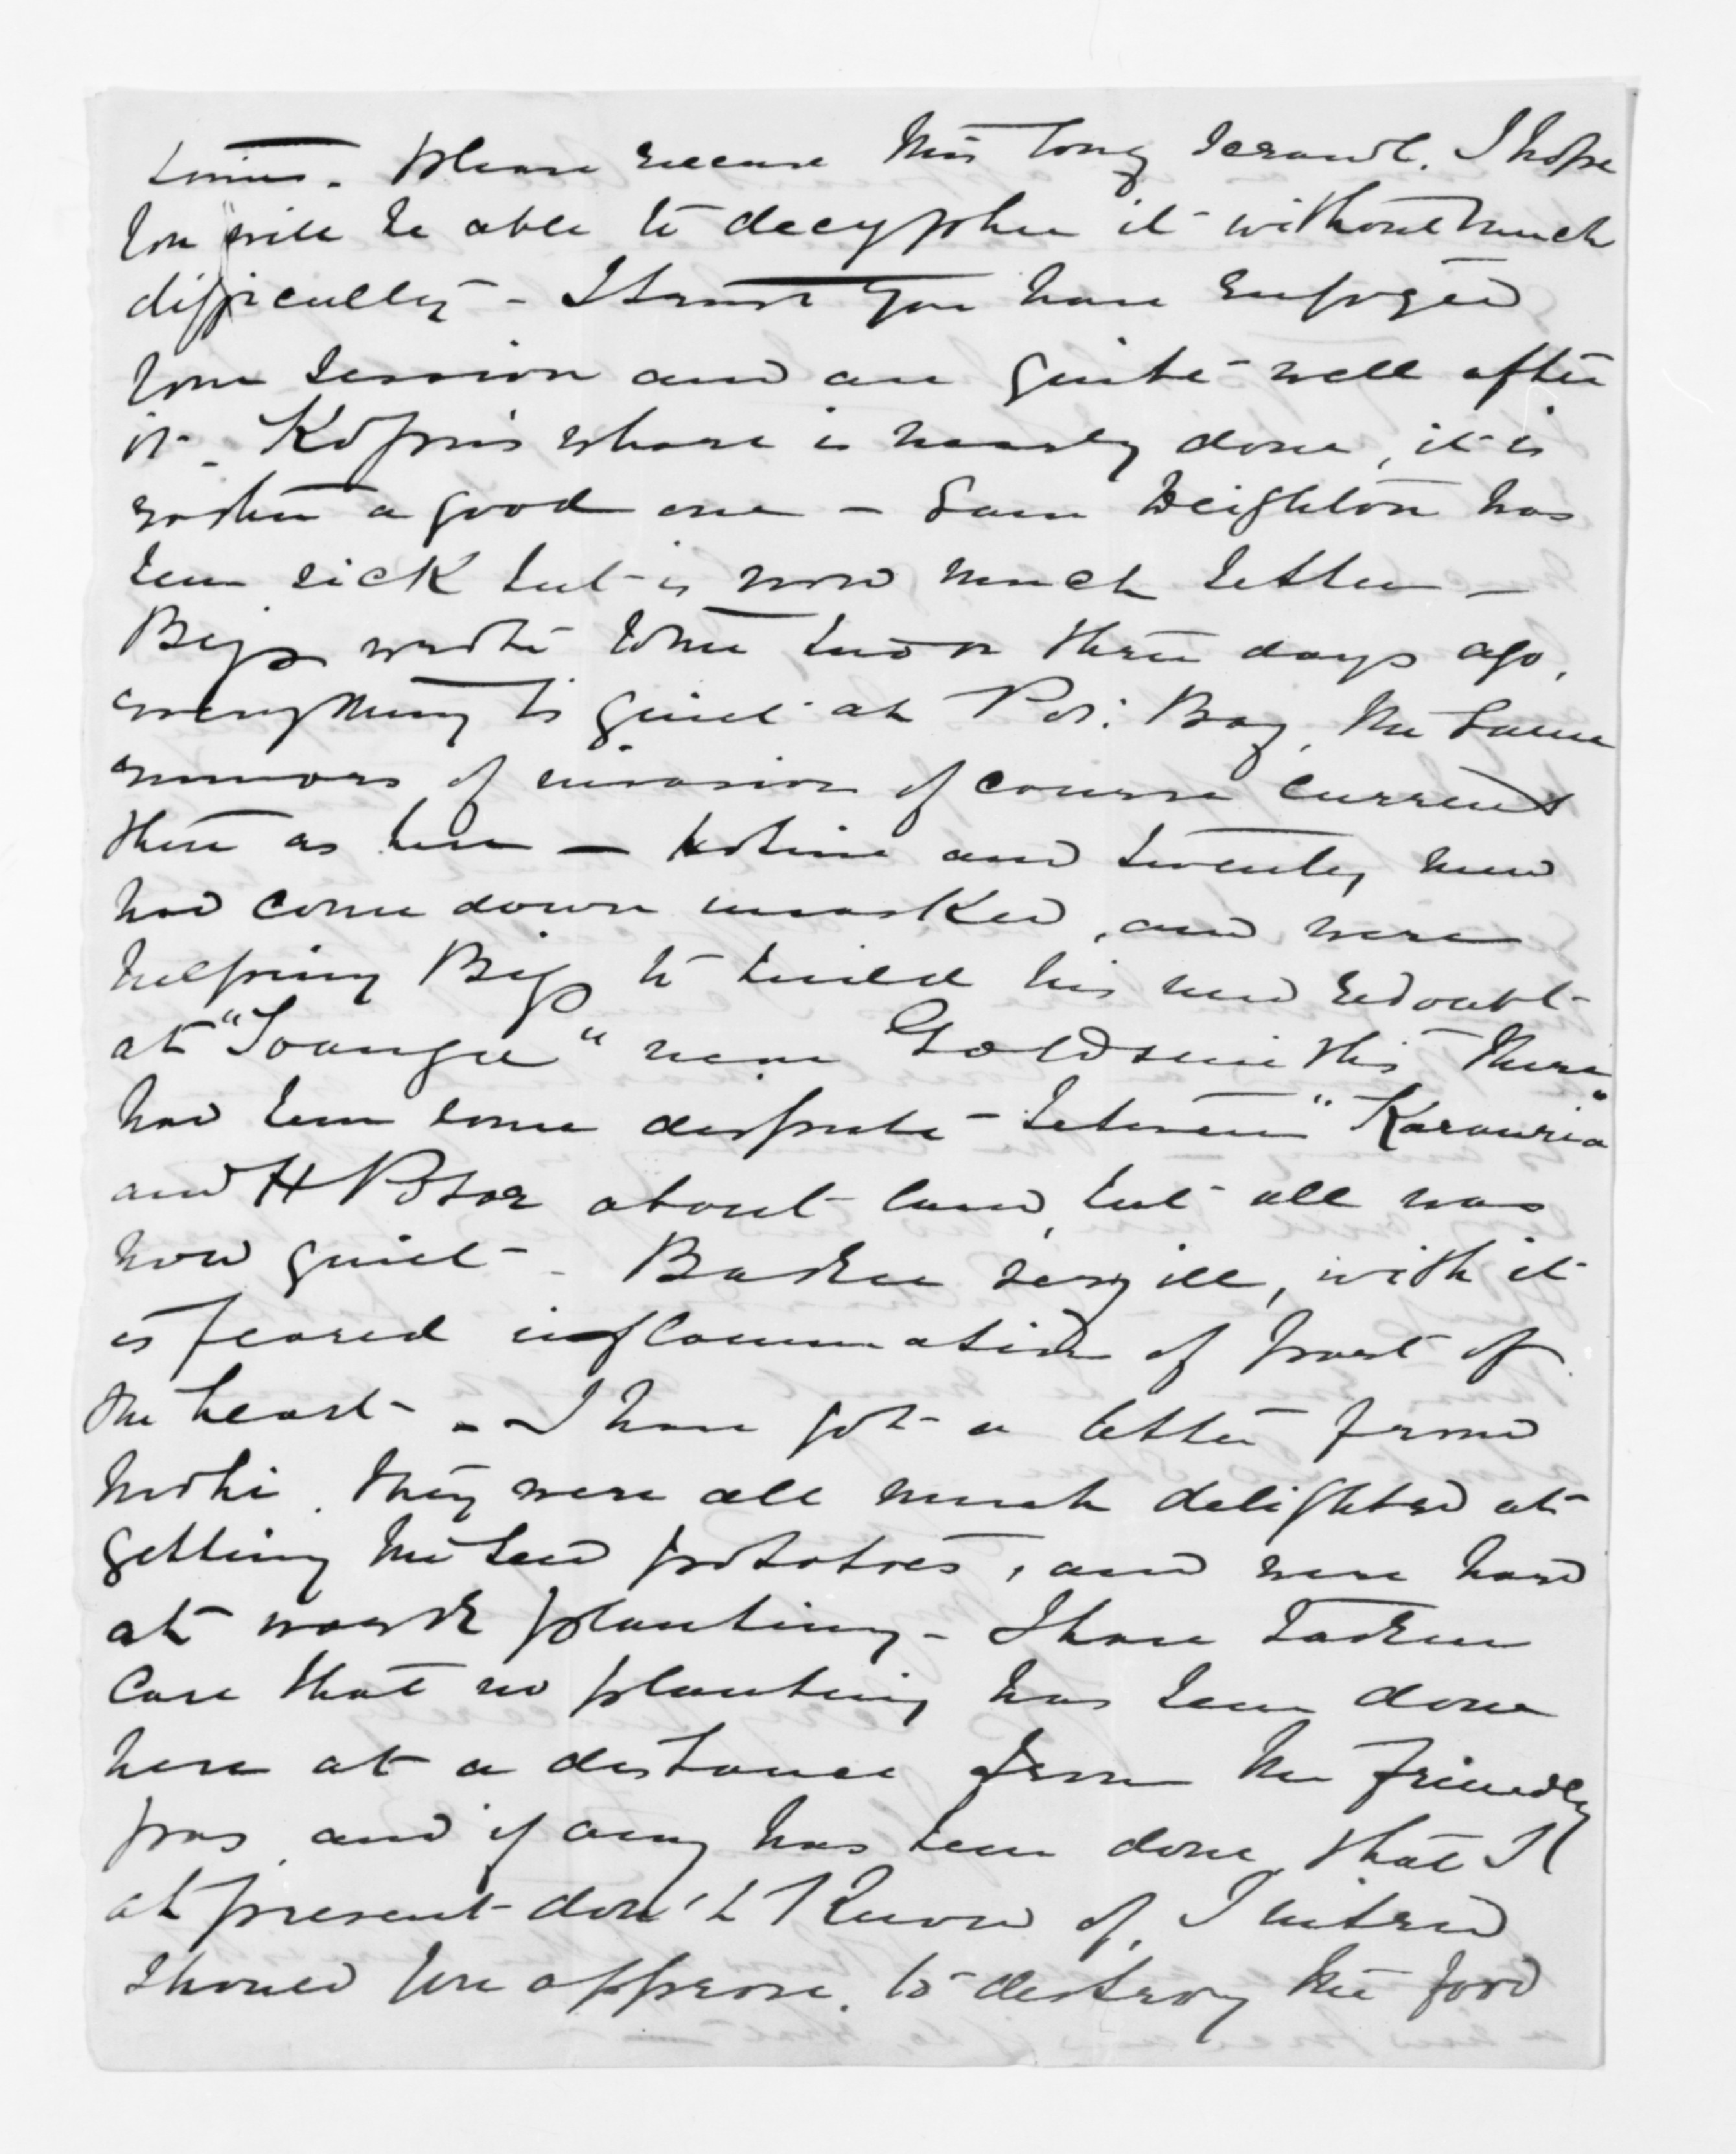 times. Please excuse this long scrawl. I hope
you will be able to decypher it without much
difficulty - I trust you have enjoyed
your session and are quite well after
it - Kopu's whare is nearly done, it is
rather a good one - Sam Deighton has
been sick but is now much better -
Biggs wrote to me two or three days ago,
everything is quiet at Pov: Bay, the same
rumors of invasion of course current
there as here - and twenty men
had come down unasked, and were
helping Biggs to build his new redoubt
at "Toanga" near Goldsmith's there
had been some dispute between "Karauria"
and H Potae about land, but all was
now quiet - Baker very ill, with it
is feared inflammation of part of
the heart - I have got a letter from
Moki. They were all much delighted at
getting the seed potatoes, and were hard
at work planting - I have taken
care that no planting has been done
here at a distance from the friendly
pas, and if any has been done that I
at present don't know of, I intend
should you approve, to destroy the food